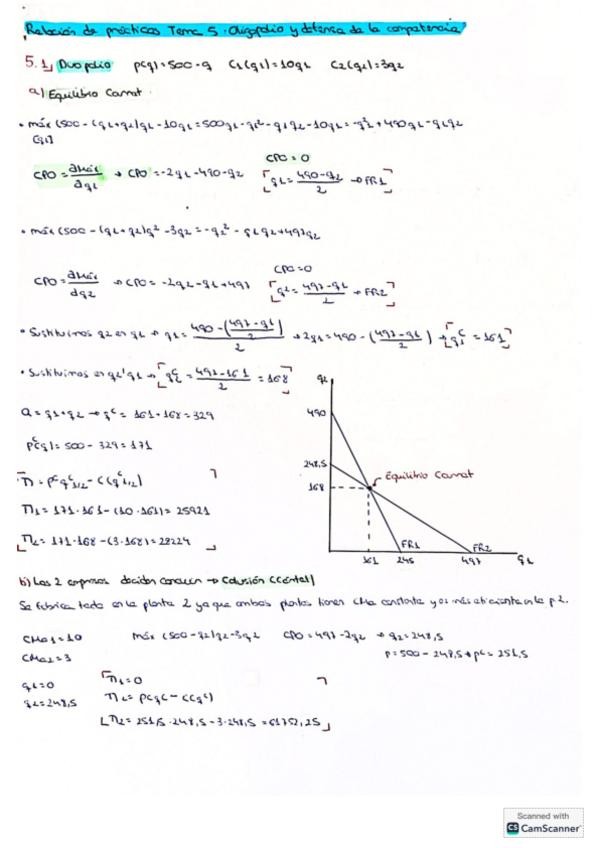 Relación de prácticas Tema 5. Oligopolio y defensa de la competencia
5.1, Duopolio p(q)=500-q C1(q1)=10q1 C2(q2)=3q2
a) Equilibrio Cournot.
• máx (500-(q1+q2)q1-10q1=500q1-q1²-q1q2-10q1=-q1²+490q1-q1q2
(q1)
CPO=0
CPO=∂Máx/∂q1 → CPO=-2q1-490-q2 q1=490-q2/2 → FR1
• máx (500-(q1+q2)q²-3q2=-q2²-q1q2+497q2
CPO=0
CPO=∂Máx/∂q2 → CPO=-2q2-q1+497 q2=497-q1/2 → FR2
• Sustituimos q2 en q1 → q1=490-(497-q1/2)/2 → 2q1=490-(497-q1/2) → q1ᶜ=161
• Sustituimos en q2 q1 → q2ᶜ=497-161/2=168
Q=q1+q2 → qᶜ=161+168=329
pᶜ(q)=500-329=171
Π=pᶜqᶜ1/2-C(qᶜ1/2)
Π1=171·161-(10·161)=25921
Π2=171·168-(3·168)=28224
q2
490
248,5
168
Equilibrio Cournot
FR1
FR2
161 245 497 q1
b) Las 2 empresas deciden → Colusión (Cártel)
Se fabrica todo en la planta 2 ya que ambas plantas tienen CMa constante y es más eficiente en la p2.
CMa1=10 máx (500-q2)q2-3q2 CPO=497-2q2 → q2=248,5
CMa2=3 p=500-248,5 → pᶜ=251,5
q1=0 Π1=0
q2=248,5 Π2=pᶜqᶜ-C(qᶜ)
Π2=251,5·248,5-3·248,5=61752,25
Scanned with
CS CamScanner